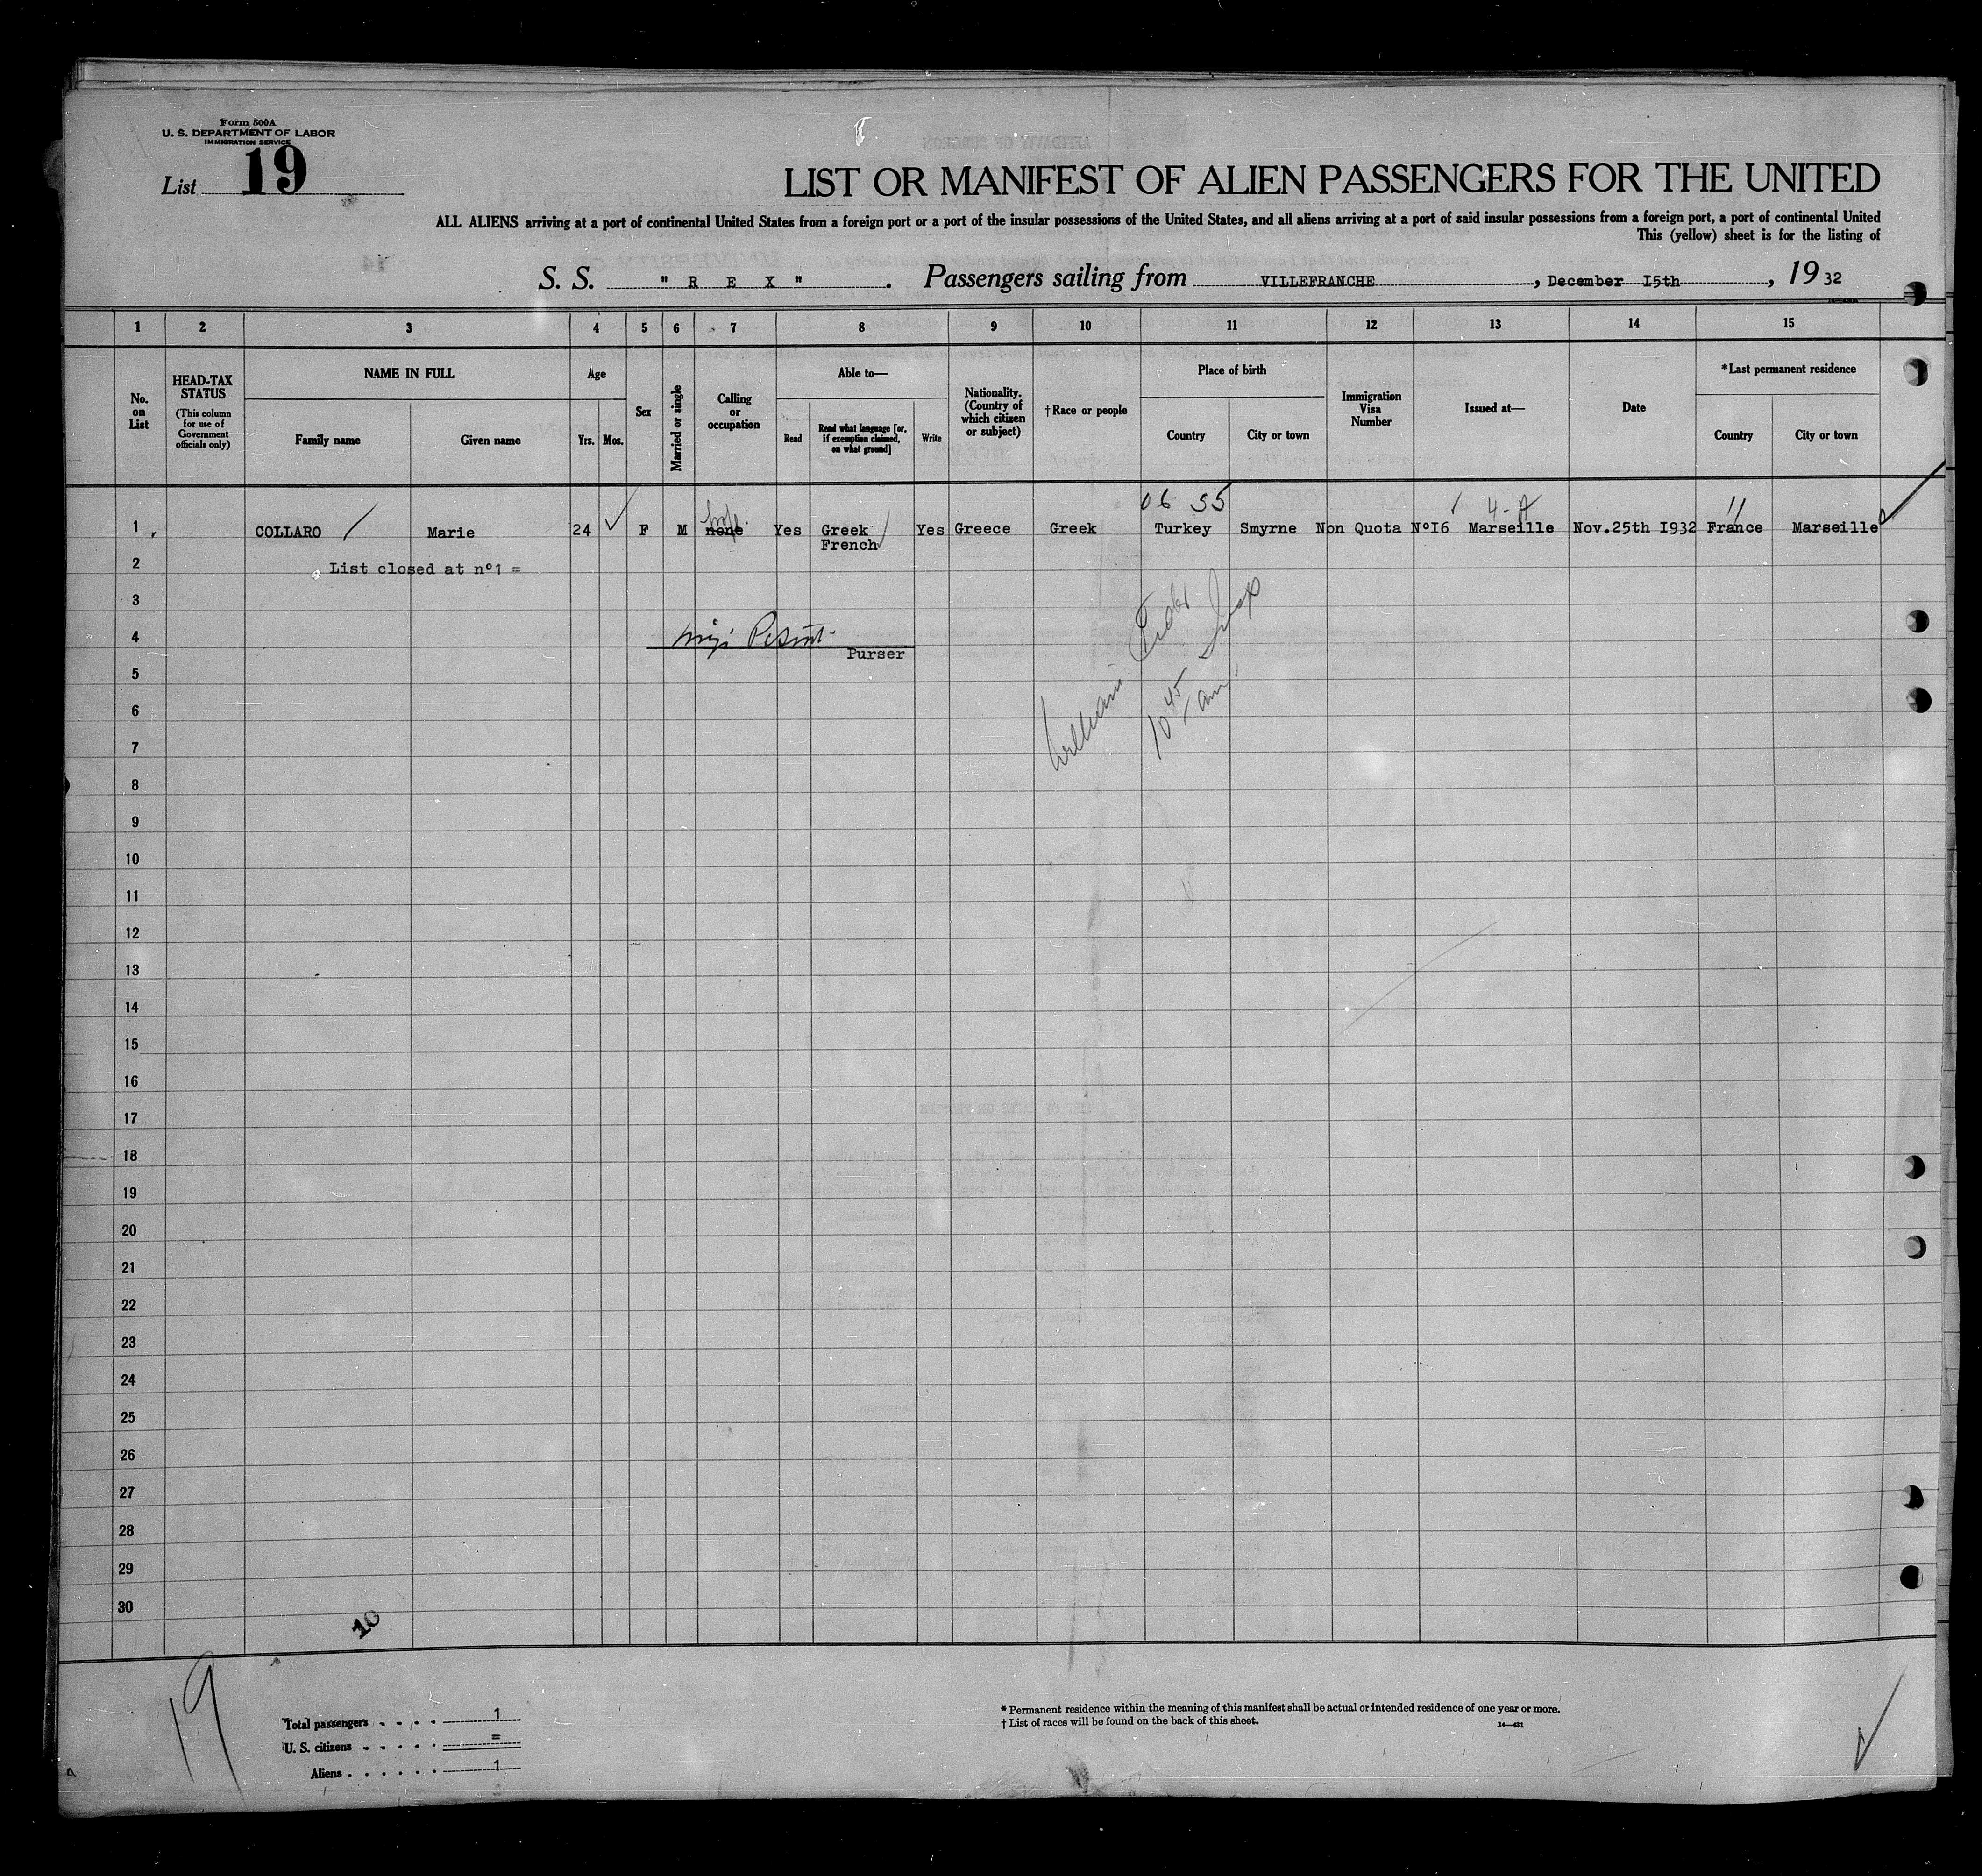 Form 500A
U. S. DEPARTMENT OF LABOR
IMMIGRATION SERVICE
List 19
LIST OR MANIFEST OF ALIEN PASSENGERS FOR THE UNITED
ALL ALIENS arriving at a port of continental United States from a foreign port or a port of the insular possessions of the United States, and all aliens arriving at a port of said insular possessions from a foreign port, a port of continental United
This (yellow) sheet is for the listing of
S. S. " R E X " . Passengers sailing from VILLEFRANCHE , December I5th , 1932
1 2 3 4 5 6 7 8 9 10 11 12 13 14 15
No. on List
HEAD-TAX STATUS (This column for use of Government officials only)
NAME IN FULL
Family name Given name
Age
Yrs. Mos.
Sex
Married or single
Calling or occupation
Able to—
Read
Read what language [or, if exemption claimed, on what ground]
Write
Nationality. (Country of which citizen or subject)
† Race or people
Place of birth
Country City or town
Immigration Visa Number
Issued at—
Date
*Last permanent residence
Country City or town
06 55 4-A
1 COLLARO Marie 24 F M none Yes Greek Yes Greece Greek Turkey Smyrne Non Quota NºI6 Marseille Nov.25th I932 France Marseille
French
2 List closed at nº1 =
3
4
Purser
5
William
10 45 am
6
7
8
9
10
11
12
13
14
15
16
17
18
19
20
21
22
23
24
25
26
27
28
29
30
10
19
Total passengers . . . . 1
U. S. citizens . . . . . =
Aliens . . . . . . 1
* Permanent residence within the meaning of this manifest shall be actual or intended residence of one year or more.
† List of races will be found on the back of this sheet.